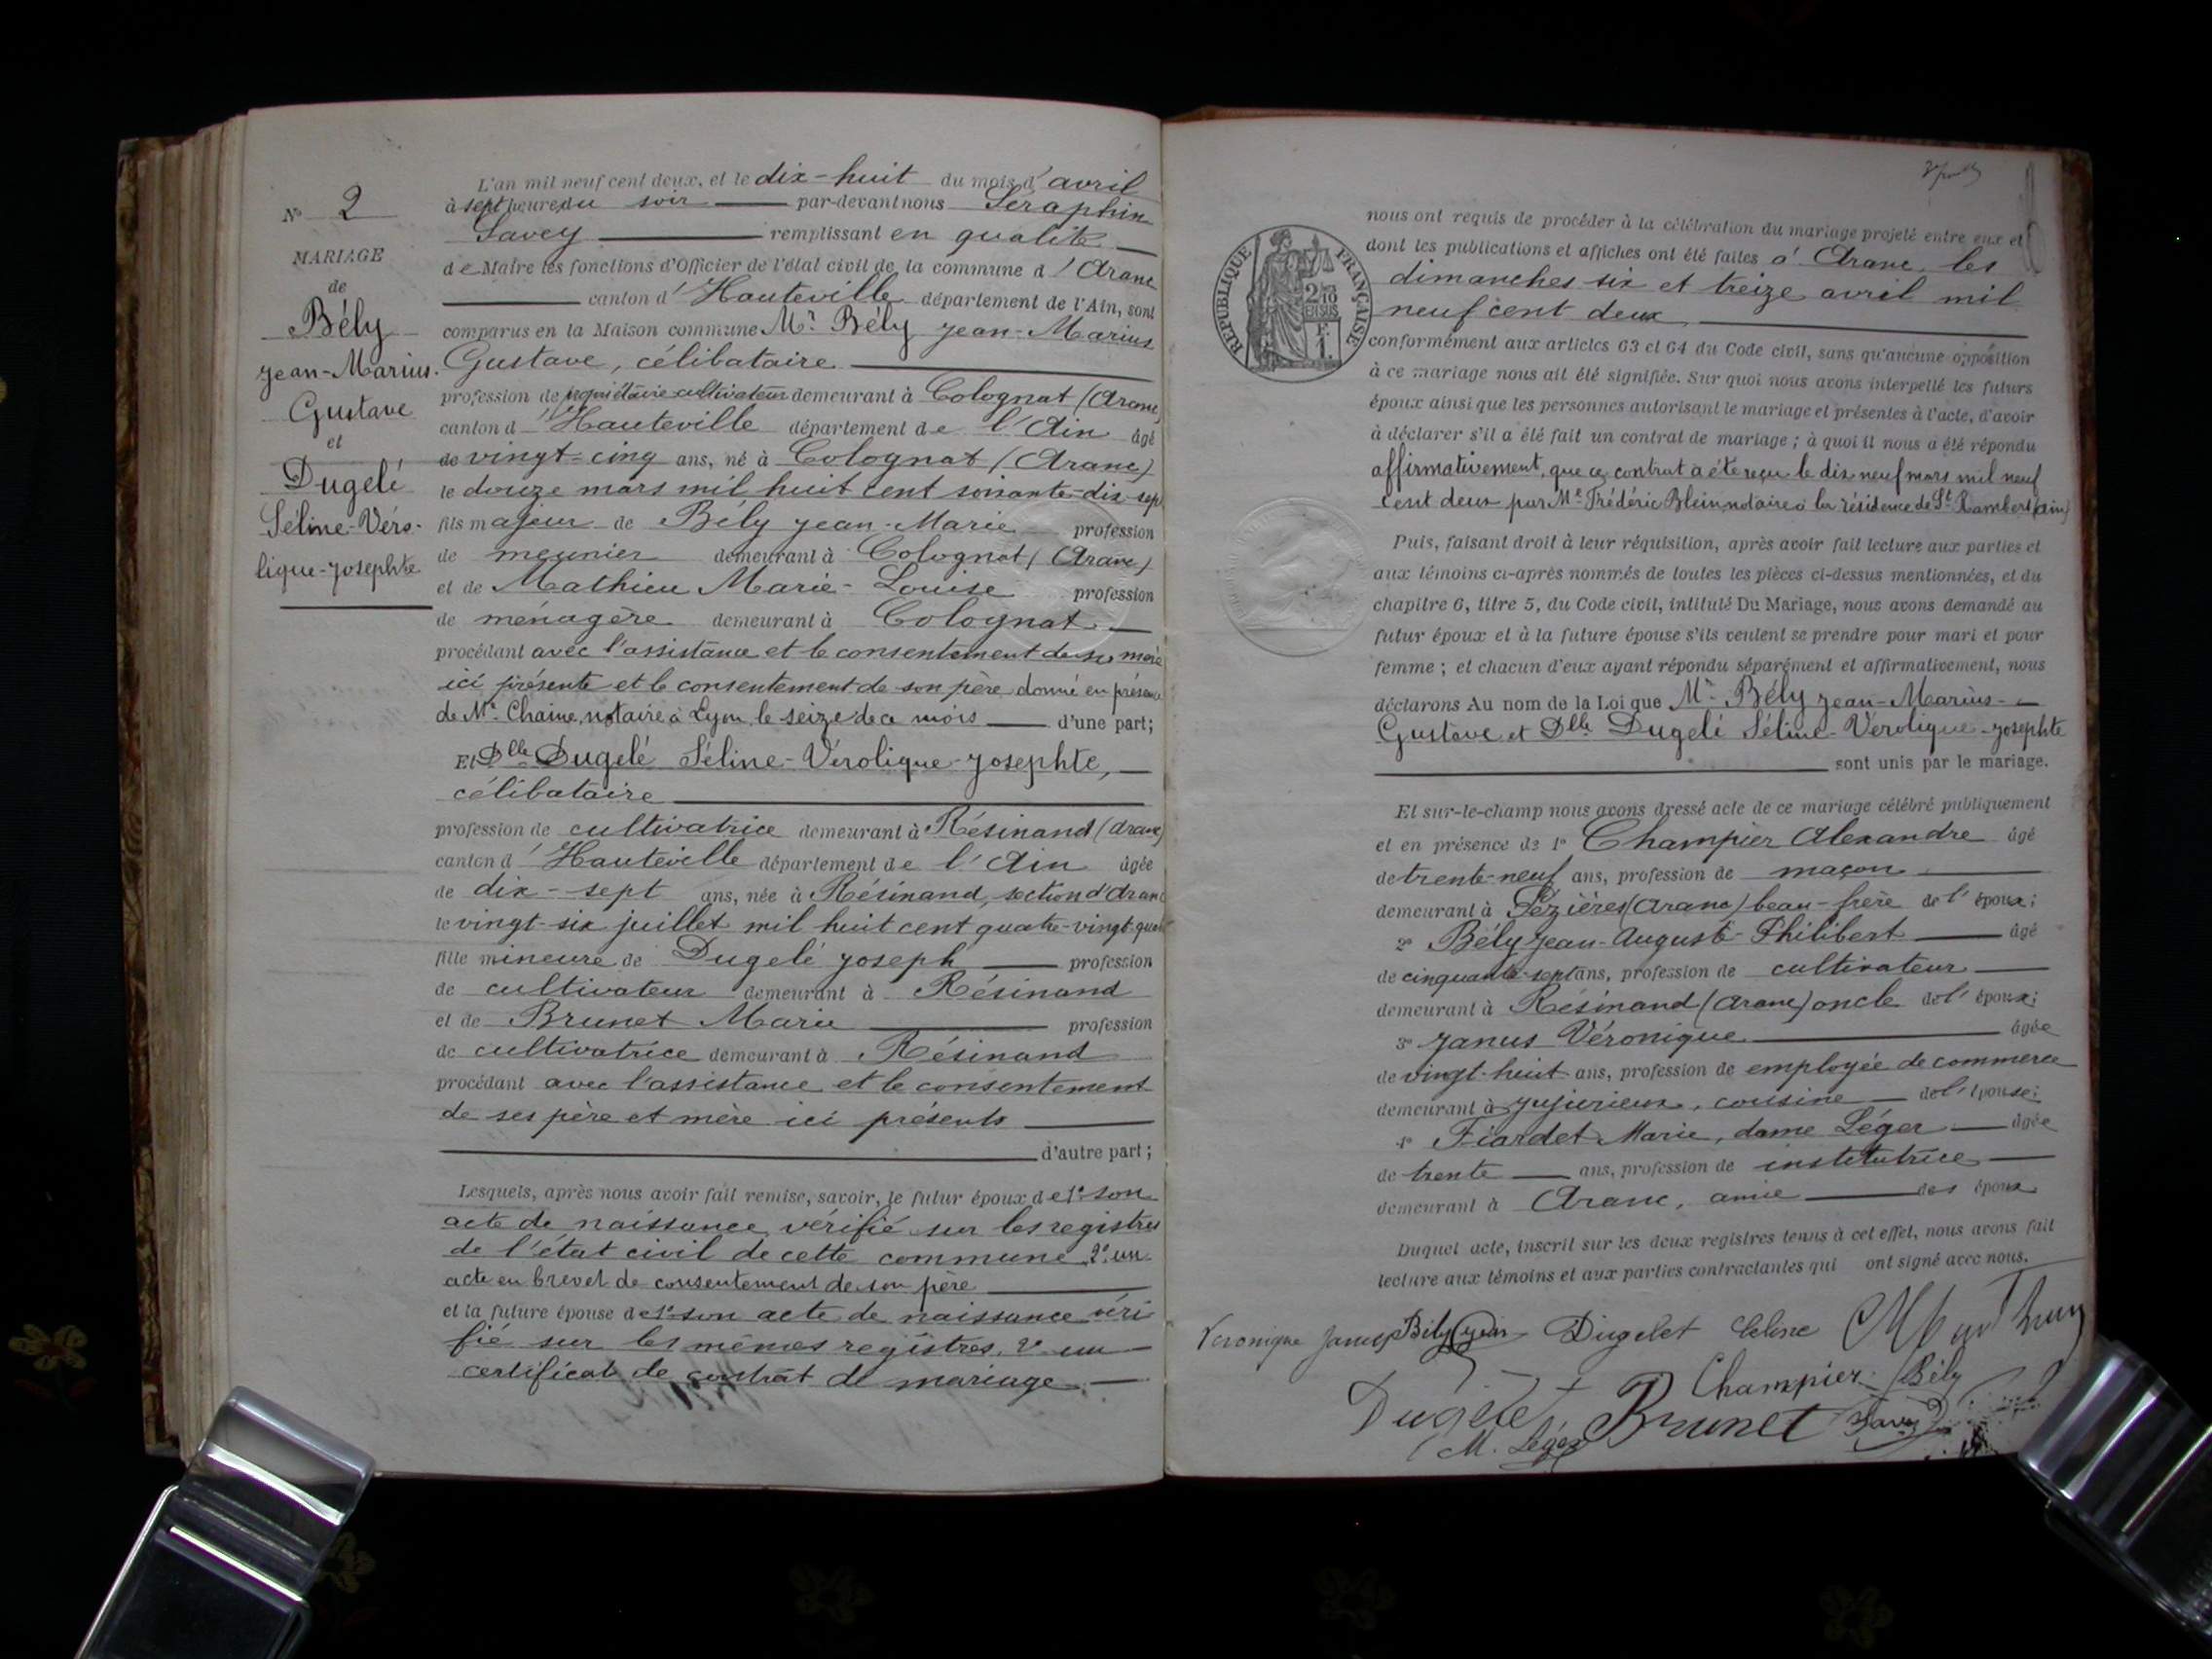 N° 2
MARIAGE
de
Bély
Jean-Marius-
Gustave
et
Dugelé
Séline-Véro-
lique-Josephte
L'an mil neuf cent deux, et le dix-huit du mois d'avril
à sept heures du soir par-devant nous Séraphin
Savey remplissant en qualité
de Maire les fonctions d'Officier de l'état civil de la commune d'Aranc
canton d'Hauteville département de l'Ain, sont
comparus en la Maison commune Mr Bély Jean-Marius
Gustave, célibataire
profession de propriétaire cultivateur demeurant à Colognat (Aranc)
canton d'Hauteville département de l'Ain âgé
de vingt-cinq ans, né à Colognat (Aranc)
le douze mars mil huit cent soixante-dix-sept
fils majeur de Bély Jean-Marie profession
de meunier demeurant à Colognat (Aranc)
et de Mathieu Marie-Louise profession
de ménagère demeurant à Colognat
procédant avec l'assistance et le consentement de sa mère
ici présente et le consentement de son père donné en présence
de Me Chaine, notaire à Lyon, le seize de ce mois d'une part;
Et Dlle Dugelé Séline-Vérolique-Josephte,
célibataire
profession de cultivatrice demeurant à Résinand (Aranc)
canton d'Hauteville département de l'Ain âgée
de dix-sept ans, née à Résinand, section d'Aranc
le vingt-six juillet mil huit cent quatre-vingt-quat
fille mineure de Dugelé Joseph profession
de cultivateur demeurant à Résinand
et de Brunet Marie profession
de cultivatrice demeurant à Résinand
procédant avec l'assistance et le consentement
de ses père et mère ici présents
d'autre part;
Lesquels, après nous avoir fait remise, savoir, le futur époux de 1° son
acte de naissance, vérifié sur les registres
de l'état civil de cette commune, 2° un
acte en brevet de consentement de son père
et la future épouse de 1° son acte de naissance véri
fié sur les mêmes registres, 2° un
certificat de contrat de mariage
RÉPUBLIQUE FRANÇAISE
2/10
EN SUS
F.
1.
nous ont requis de procéder à la célébration du mariage projeté entre eux et
dont les publications et affiches ont été faites à Aranc, les
dimanches six et treize avril mil
neuf cent deux
conformément aux articles 63 et 64 du Code civil, sans qu'aucune opposition
à ce mariage nous ait été signifiée. Sur quoi nous avons interpellé les futurs
époux ainsi que les personnes autorisant le mariage et présentes à l'acte, d'avoir
à déclarer s'il a été fait un contrat de mariage; à quoi il nous a été répondu
affirmativement, que ce contrat a été reçu le dix neuf mars mil neuf
cent deux par Me Frédéric Blein, notaire à la résidence de St Rambert (Ain)
Puis, faisant droit à leur réquisition, après avoir fait lecture aux parties et
aux témoins ci-après nommés de toutes les pièces ci-dessus mentionnées, et du
chapitre 6, titre 5, du Code civil, intitulé Du Mariage, nous avons demandé au
futur époux et à la future épouse s'ils veulent se prendre pour mari et pour
femme; et chacun d'eux ayant répondu séparément et affirmativement, nous
déclarons Au nom de la Loi que Mr Bély Jean-Marius-
Gustave et Dlle Dugelé Séline-Vérolique-Josephte
sont unis par le mariage.
Et sur-le-champ nous avons dressé acte de ce mariage célébré publiquement
et en présence de 1° Champier Alexandre âgé
de trente-neuf ans, profession de maçon
demeurant à Pézières (Aranc) beau-frère de l'époux;
2° Bély Jean-Auguste-Philibert âgé
de cinquante-sept ans, profession de cultivateur
demeurant à Résinand (Aranc) oncle de l'époux;
3° Janus Véronique âgée
de vingt-huit ans, profession de employée de commerce
demeurant à Jujurieux, cousine de l'épouse;
4° Fiardet Marie, dame Léger âgée
de trente ans, profession de institutrice
demeurant à Aranc, amie des époux
Duquel acte, inscrit sur les deux registres tenus à cet effet, nous avons fait
lecture aux témoins et aux parties contractantes qui ont signé avec nous.
Veronique Janus Bély Jean Dugelet Celine
Champier Bély
Dugelé Brunet Savey
M. Léger